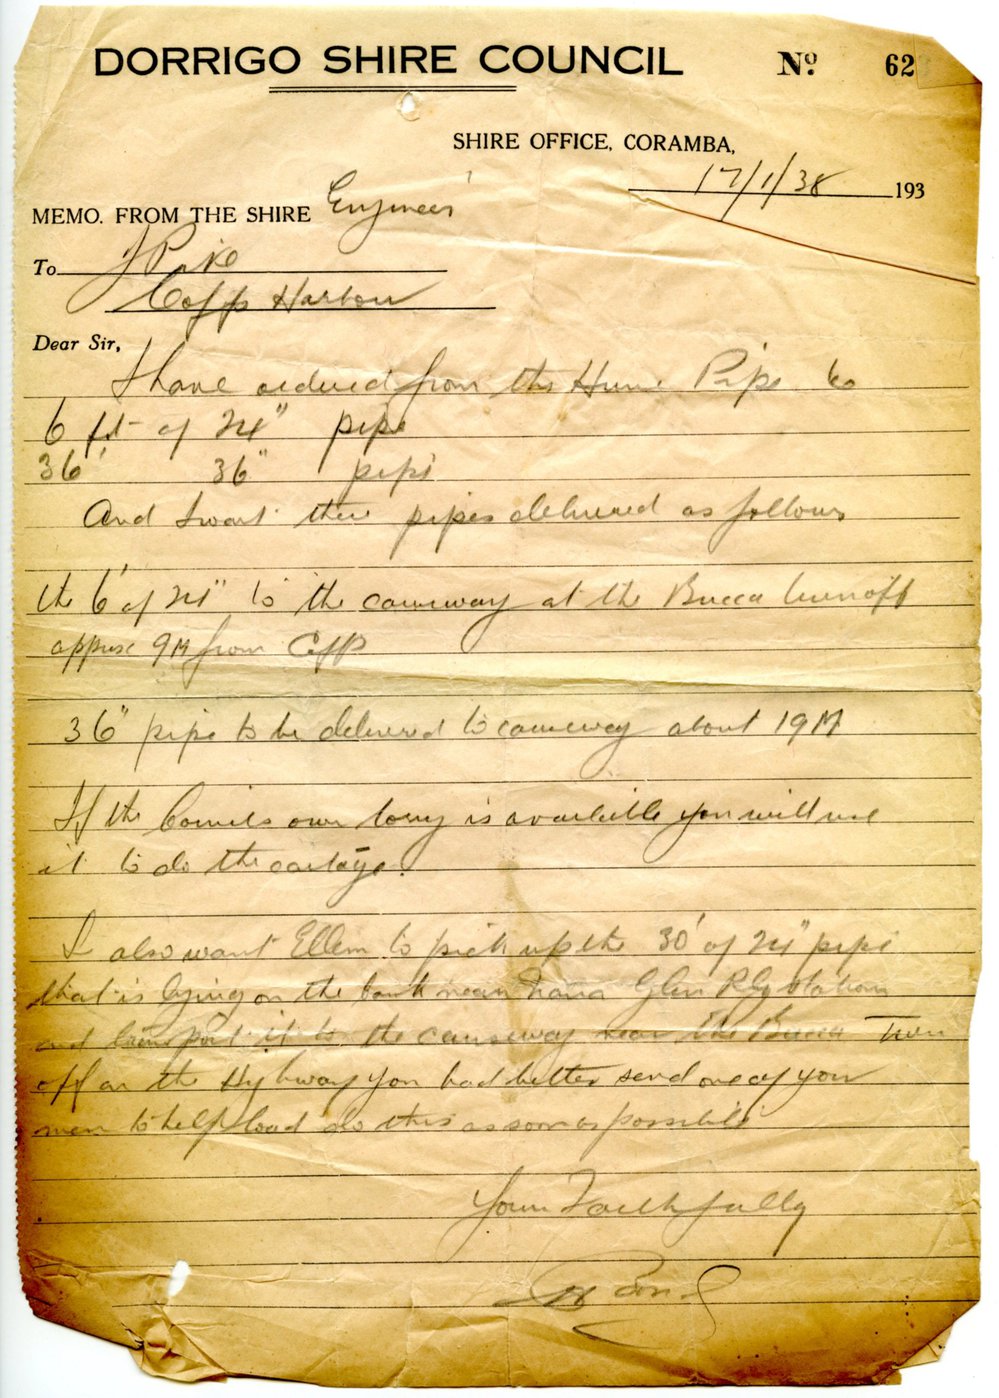 DORRIGO SHIRE COUNCIL Nº 62
SHIRE OFFICE, CORAMBA,
17/1/38 193
MEMO. FROM THE SHIRE Engineer
To J Pike
Coffs Harbour
Dear Sir,
I have ordered from the Hume Pipe Co
6 ft of 24" pipe
36' 36" pipe
And I want these pipes delivered as follows
the 6' of 24" to the causeway at the Bucca turnoff
approx 9M from Coffs
36" pipe to be delivered to causeway about 19M
If the Councils own lorry is available you will use
it to do the cartage.
I also want Ellem to pick up the 30' of 24" pipe
that is lying on the bank near Nana Glen Rly station
and transport it to the causeway near the Bucca Turn
off on the Highway you had better send one of your
men to help load do this as soon as possible
Yours Faithfully